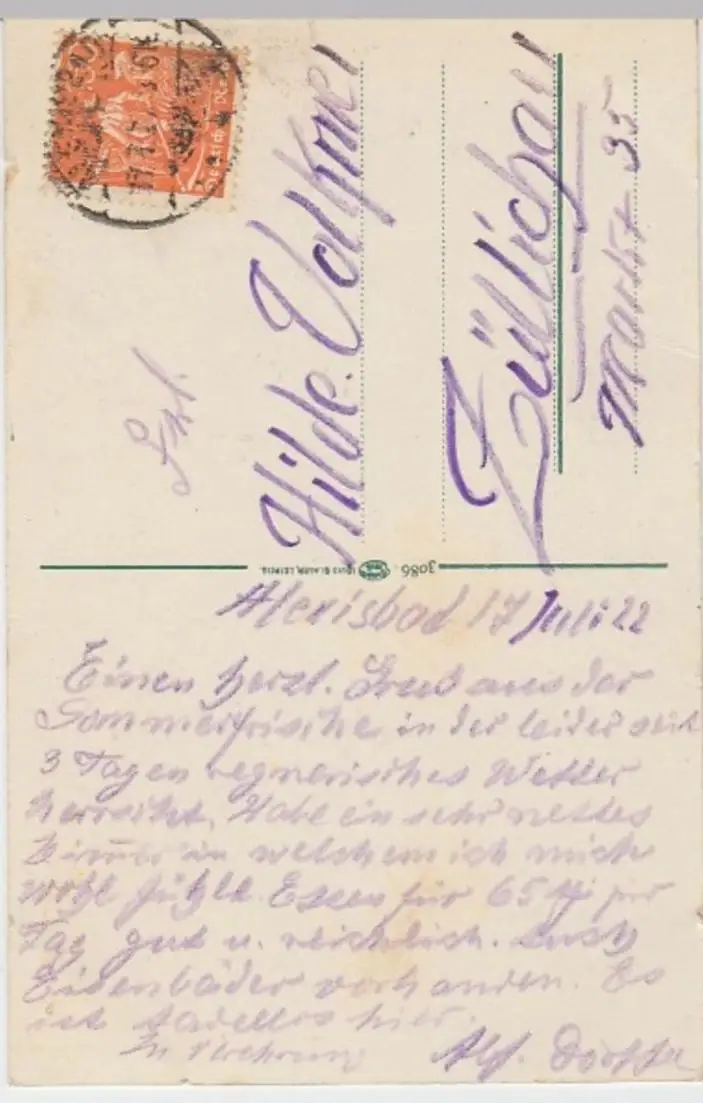 Frl.
Hilde Volkmer
Züllichau
Markt 35
3086
LOUIS GLASER, LEIPZIG
Deutsches Reich
Alexisbad 17 Juli 22
Einen herzl. Gruß aus der
Sommerfrische in der leider seit
3 Tagen regnerisches Wetter
herrscht. Habe ein sehr nettes
Zimmer in welchem ich mich
wohl fühle. Essen für 65 M per
Tag gut u. reichlich. Auch
Eisenbäder vorhanden. Es
ist tadellos hier.
In Verehrung Alf.